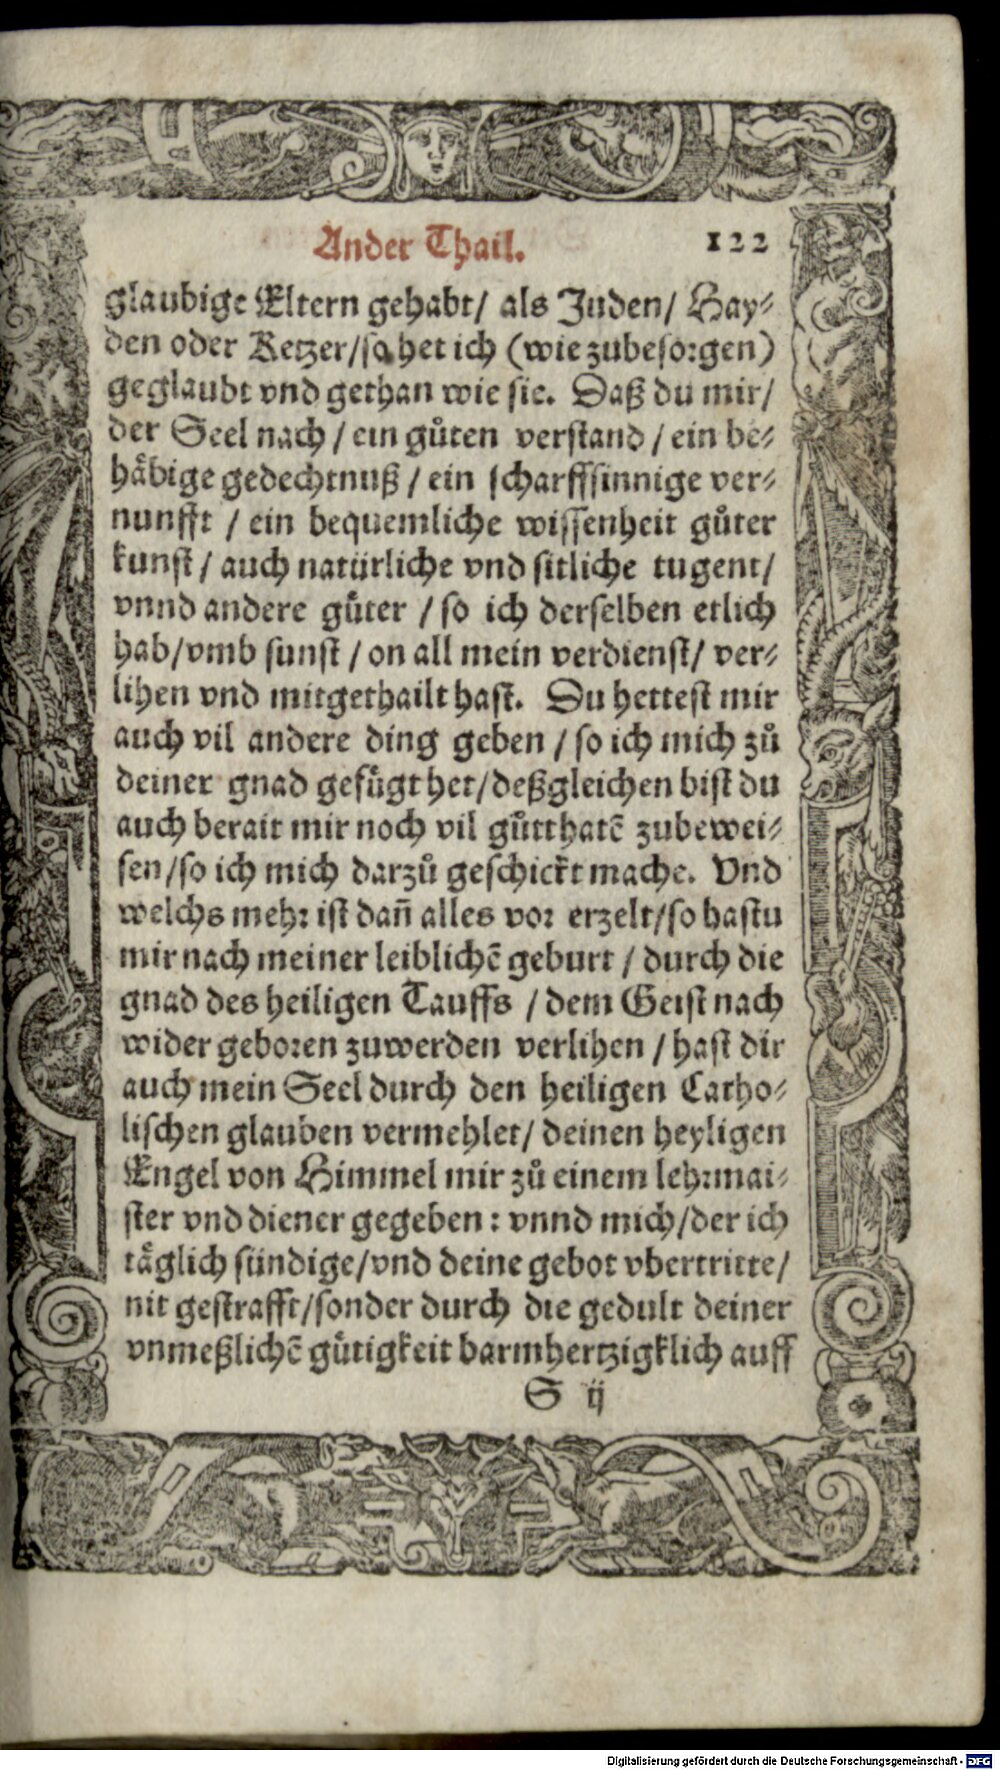 Ander Thail. 122
glaubige Eltern gehabt/ als Juden/ Hay⸗
den oder Ketzer/so het ich (wie zubesorgen)
geglaubt vnd gethan wie sie. Daß du mir/
der Seel nach / ein gůten verstand / ein be⸗
häbige gedechtnuß / ein scharffsinnige ver⸗
nunfft / ein bequemliche wissenheit gůter
kunst / auch natürliche vnd sitliche tugent/
vnnd andere gůter / so ich derselben etlich
hab/vmb sunst / on all mein verdienst/ ver⸗
lihen vnd mitgethailt hast. Du hettest mir
auch vil andere ding geben / so ich mich zů
deiner gnad gefůgt het/deßgleichen bist du
auch berait mir noch vil gůtthatē zubewei⸗
sen/so ich mich darzů geschickt mache. Vnd
welchs mehr ist dañ alles vor erzelt/so hastu
mir nach meiner leiblichē geburt / durch die
gnad des heiligen Tauffs / dem Geist nach
wider geboren zuwerden verlihen / hast dir
auch mein Seel durch den heiligen Catho⸗
lischen glauben vermehlet/ deinen heyligen
Engel von Himmel mir zů einem lehrmai⸗
ster vnd diener gegeben: vnnd mich/der ich
täglich sündige/vnd deine gebot vbertritte/
nit gestrafft/sonder durch die gedult deiner
vnmeßlichē gůtigkeit barmhertzigklich auff
S ij
Digitalisierung gefördert durch die Deutsche Forschungsgemeinschaft - DFG